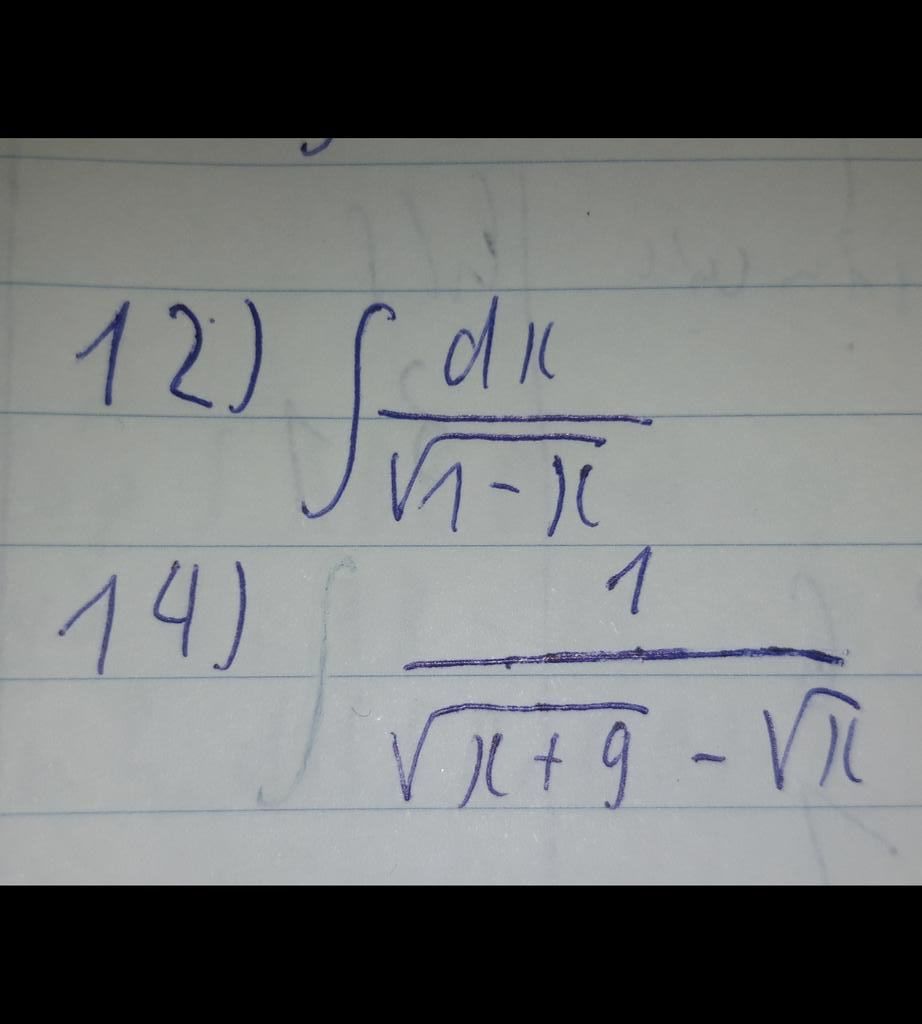 12) ∫ dx / √(1-x)
14) ∫ 1 / (√(x+9) - √x)